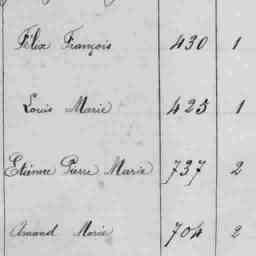 Félix François 430 1
Louis Marie 425 1
Etienne Pierre Marie 737 2
Amand Marie 704 2